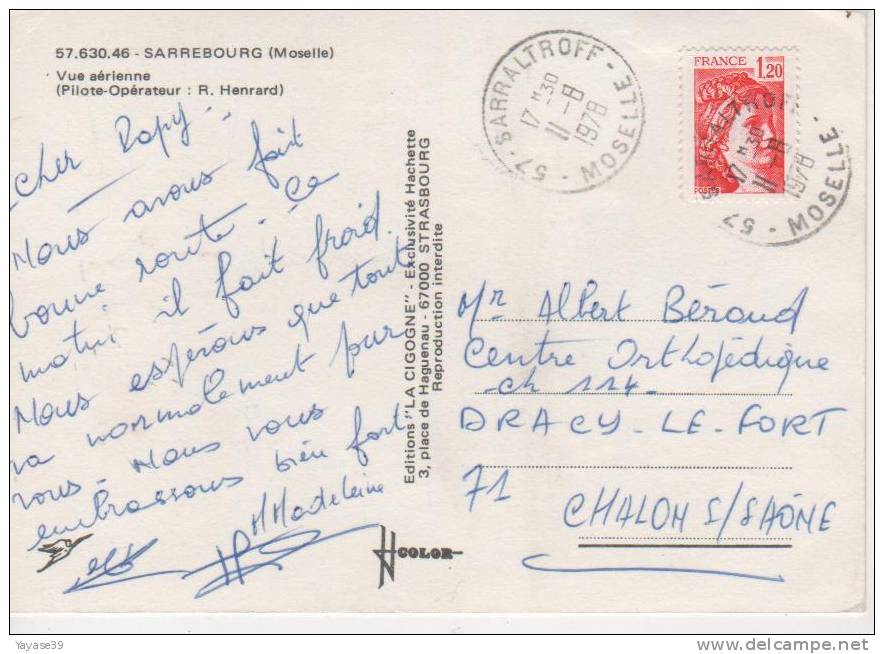 57.630.46 - SARREBOURG (Moselle)
Vue aérienne
(Pilote-Opérateur : R. Henrard)
Cher Papy.
Nous avons fait
bonne route. Ce
matin il fait froid.
Nous espérons que tout
va normalement pour
vous. Nous vous
embrassons bien fort
MMadeleine
Editions "LA CIGOGNE" - Exclusivité Hachette
3, place de Haguenau - 67000 STRASBOURG
Reproduction interdite
COLOR
57 - SARRALTROFF - MOSELLE
17 H30
11 -8
1978
FRANCE
1,20
POSTES
17 H30
11 -8
1978
57 - MOSELLE -
Mr Albert Béraud
Centre Orthopédique
- ch 114 -
DRACY-LE-FORT
71
CHALON S/SAÔNE
Yayase39
www.delcampe.net